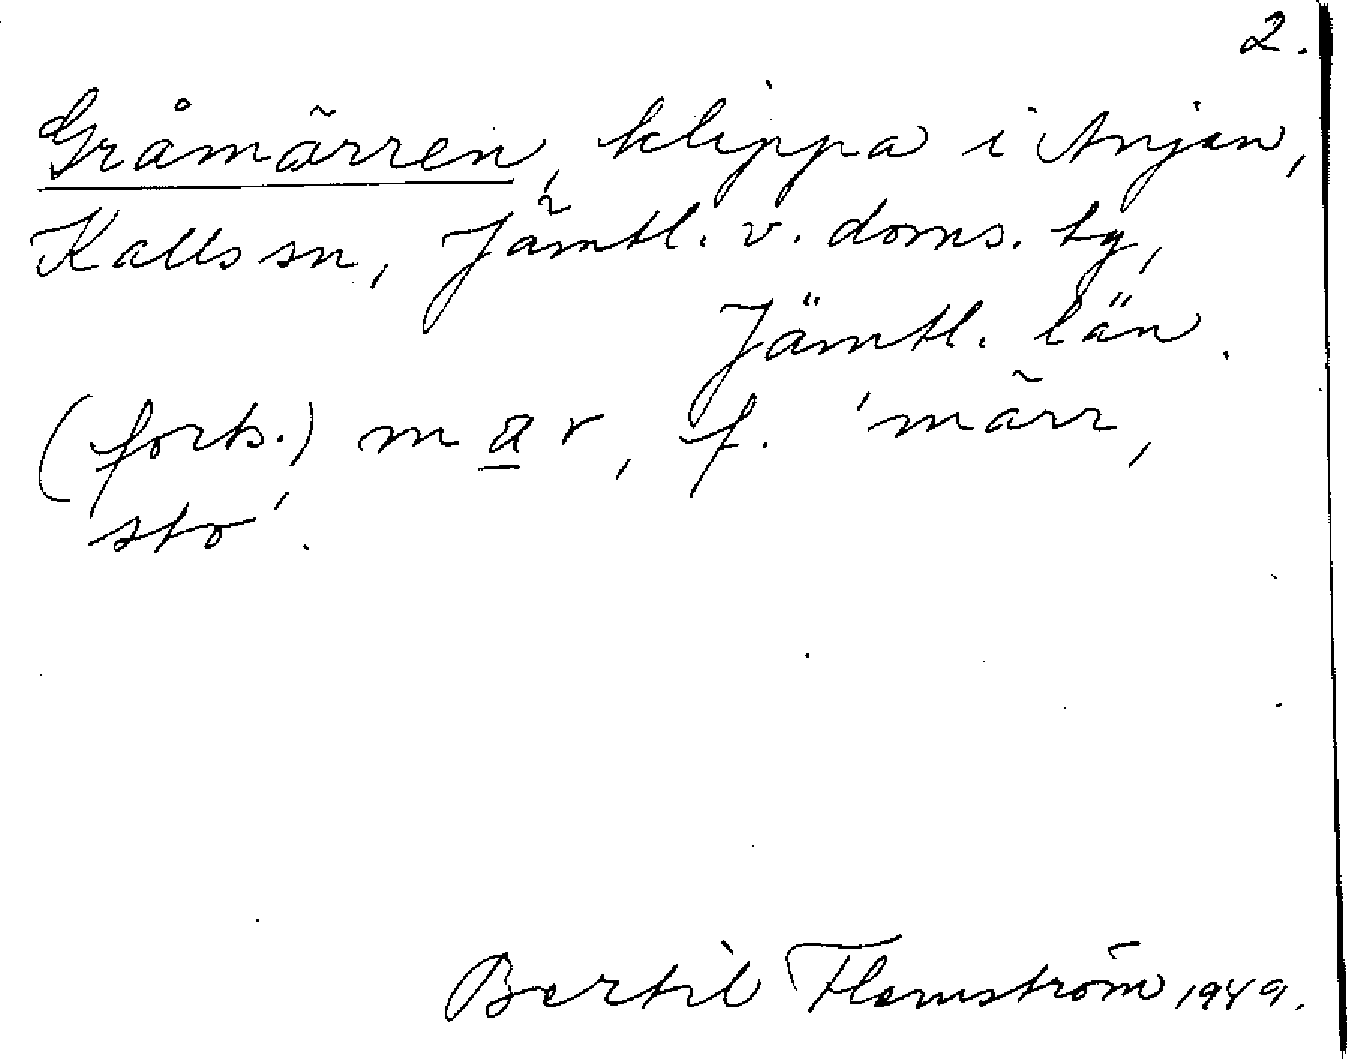 2.
Gråmärren, klippa i Anjan,
Kalls sn, Jämtl. v. doms. tg,
Jämtl. län.
(forts.) mar, f. 'märr,
sto'.
Bertil Flemström 1949.